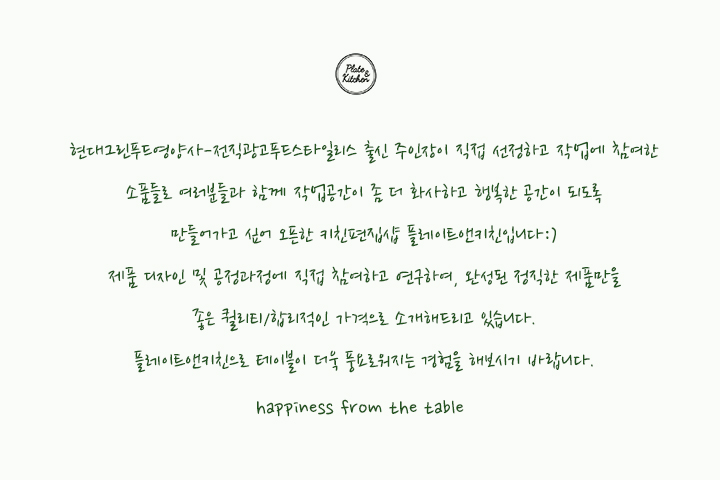 Plate &
Kitchen
현대그린푸드영양사-전직광고푸드스타일리스 출신 주인장이 직접 선정하고 작업에 참여한
소품들로 여러분들과 함께 작업공간이 좀 더 화사하고 행복한 공간이 되도록
만들어가고 싶어 오픈한 키친편집샵 플레이트앤키친입니다:)
제품 디자인 및 공정과정에 직접 참여하고 연구하여, 완성된 정직한 제품만을
좋은 퀄리티/합리적인 가격으로 소개해드리고 있습니다.
플레이트앤키친으로 테이블이 더욱 풍요로워지는 경험을 해보시기 바랍니다.
happiness from the table